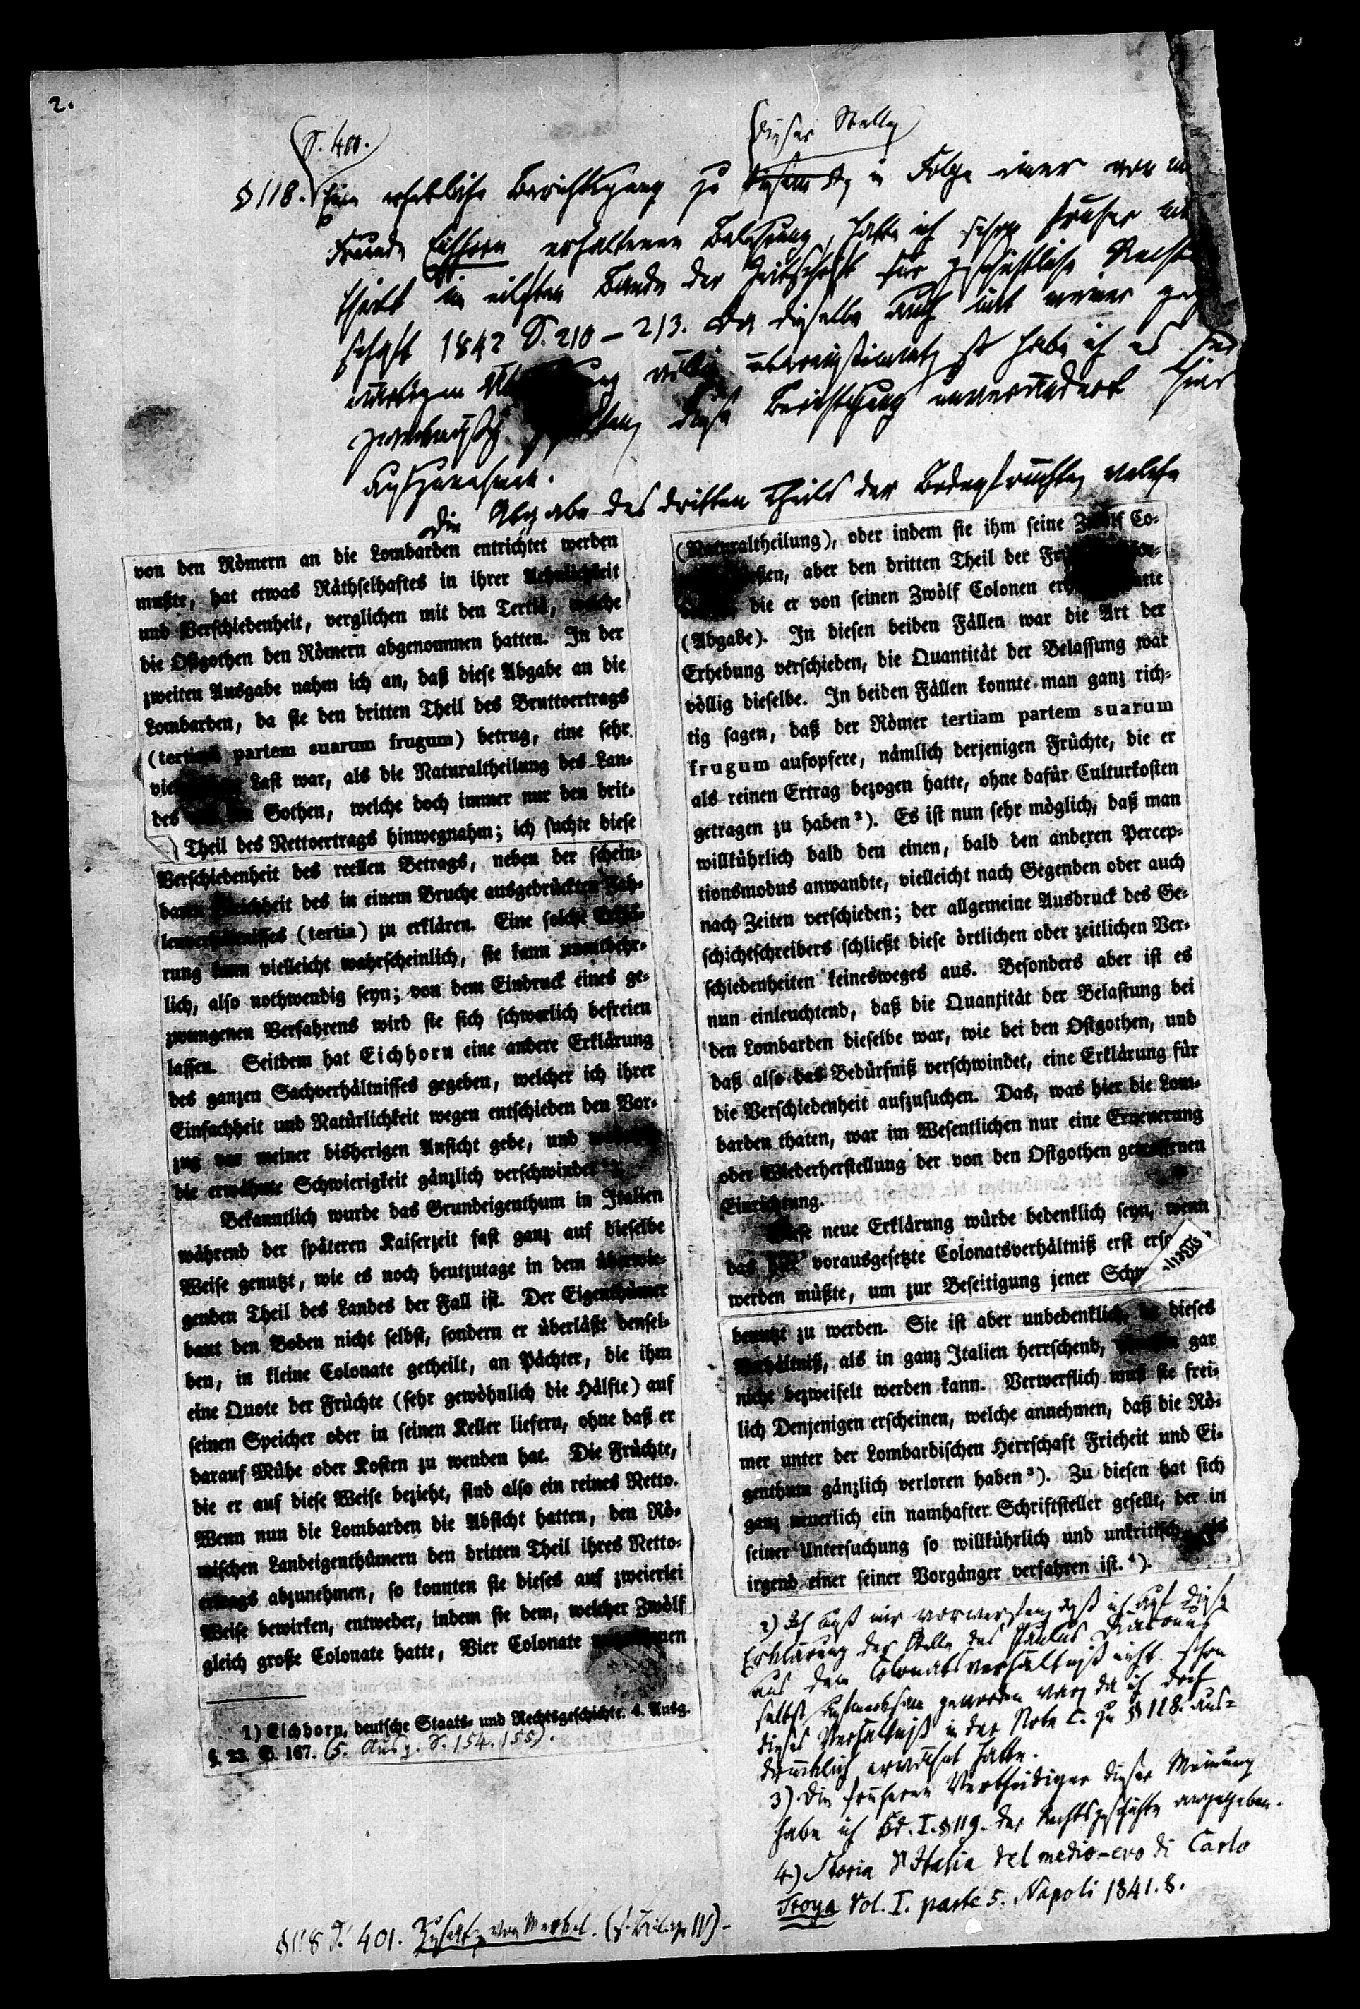 2.
S. 400.
dieser Stelle
§ 118. Eine erhebliche Berichtigung zu in Folge einer von
Freunde Eichhorn erhaltenen Belehrung, hatte ich schon früher
theilt im eilften Bande der Zeitschrift für geschichtliche Rechts
schaft 1842 S. 210 – 213. Da dieselbe auch mit meiner
völlig übereinstimmt, so habe ich es für
zweckmäßig diese Berichtigung unverändert hier
aufzunehmen.
Die Abgabe des dritten Theils der Bodenfrüchte, welche
von den Römern an die Lombarden entrichtet werden
mußte, hat etwas Räthselhaftes in ihrer Aehnlichkeit
und Verschiedenheit, verglichen mit den Tertiä, welche
die Ostgothen den Römern abgenommen hatten. In der
zweiten Ausgabe nahm ich an, daß diese Abgabe an die
Lombarden, da sie den dritten Theil des Bruttoertrags
(tertiam partem suarum frugum) betrug, eine sehr
Last war, als die Naturaltheilung des Lan-
des Gothen, welche doch immer nur den drit-
Theil des Nettoertrags hinwegnahm; ich suchte diese
Verschiedenheit des reellen Betrags, neben der schein-
baren Gleichheit des in einem Bruche ausgedrückten Zah-
lenverhältnisses (tertia) zu erklären. Eine solche Erklä-
rung kann vielleicht wahrscheinlich, sie kann unentbehr-
lich, also nothwendig seyn; von dem Eindruck eines ge-
zwungenen Verfahrens wird sie sich schwerlich befreien
lassen. Seitdem hat Eichhorn eine andere Erklärung
des ganzen Sachverhältnisses gegeben, welcher ich ihrer
Einfachheit und Natürlichkeit wegen entschieden den Vor-
zug vor meiner bisherigen Ansicht gebe, und
die erwähnte Schwierigkeit gänzlich verschwindet
Bekanntlich wurde das Grundeigenthum in Italien
während der späteren Kaiserzeit fast ganz auf dieselbe
Weise genutzt, wie es noch heutzutage in dem überwie-
genden Theil des Landes der Fall ist. Der Eigenthümer
baut den Boden nicht selbst, sondern er überläßt densel-
ben, in kleine Colonate getheilt, an Pächter, die ihm
eine Quote der Früchte (sehr gewöhnlich die Hälfte) auf
seinen Speicher oder in seinen Keller liefern, ohne daß er
darauf Mühe oder Kosten zu wenden hat. Die Früchte,
die er auf diese Weise bezieht, sind also ein reines Netto.
Wenn nun die Lombarden die Absicht hatten, den Rö-
mischen Landeigenthümern den dritten Theil ihres Netto-
ertrags abzunehmen, so konnten sie dieses auf zweierlei
Weise bewirken, entweder, indem sie dem, welcher Zwölf
gleich große Colonate hatte, Vier Colonate
1) Eichhorn, deutsche Staats- und Rechtsgeschichte. 4. Ausg.
§. 23. S. 167. (5. Ausg. S. 154. 155).
(Naturaltheilung), oder indem sie ihm seine Zwölf Co-
ließen, aber den dritten Theil der
die er von seinen Zwölf Colonen
(Abgabe). In diesen beiden Fällen war die Art der
Erhebung verschieden, die Quantität der Belassung war
völlig dieselbe. In beiden Fällen konnte man ganz rich-
tig sagen, daß der Römer tertiam partem suarum
frugum aufopfere, nämlich derjenigen Früchte, die er
als reinen Ertrag bezogen hatte, ohne dafür Culturkosten
getragen zu haben ²). Es ist nun sehr möglich, daß man
willkührlich bald den einen, bald den anderen Percep-
tionsmodus anwandte, vielleicht nach Gegenden oder auch
nach Zeiten verschieden; der allgemeine Ausdruck des Ge-
schichtschreibers schließt diese örtlichen oder zeitlichen Ver-
schiedenheiten keinesweges aus. Besonders aber ist es
nun einleuchtend, daß die Quantität der Belastung bei
den Lombarden dieselbe war, wie bei den Ostgothen, und
daß also das Bedürfniß verschwindet, eine Erklärung für
die Verschiedenheit aufzusuchen. Das, was hier die Lom-
barden thaten, war im Wesentlichen nur eine Erneuerung
oder Wiederherstellung der von den Ostgothen getroffenen
Einrichtung.
Diese neue Erklärung würde bedenklich seyn, wenn
das hier vorausgesetzte Colonatsverhältniß erst
werden müßte, um zur Beseitigung jener
benutzt zu werden. Sie ist aber unbedenklich, da dieses
Verhältniß, als in ganz Italien herrschend, gar
nicht bezweifelt werden kann. Verwerflich muß sie frei-
lich Denjenigen erscheinen, welche annehmen, daß die Rö-
mer unter der Lombardischen Herrschaft Freiheit und Ei-
genthum gänzlich verloren haben ³). Zu diesen hat sich
ganz neuerlich ein namhafter Schriftsteller gesellt, der in
seiner Untersuchung so willkührlich und unkritisch, als
irgend einer seiner Vorgänger verfahren ist. ⁴).
2) Ich muß mir vorwerfen, daß ich auf diese
Erklärung der Stelle des Paulus Diaconus
aus dem Colonatsverhältniß nicht schon
selbst aufmerksam geworden war, da ich doch
dieses Verhältniß in der Note c. zu § 118. aus-
drücklich erwähnt hatte.
3) Die früheren Vertheidiger dieser Meinung
habe ich Bd. I. § 119. der Rechtsgeschichte angegeben.
4) Storia d'Italia del medio-evo di Carlo
Troya Vol. I. parte 5. Napoli 1841. 8.
§ 118 S. 401. Zusatz von Merkel. (s. Beilage IV) –